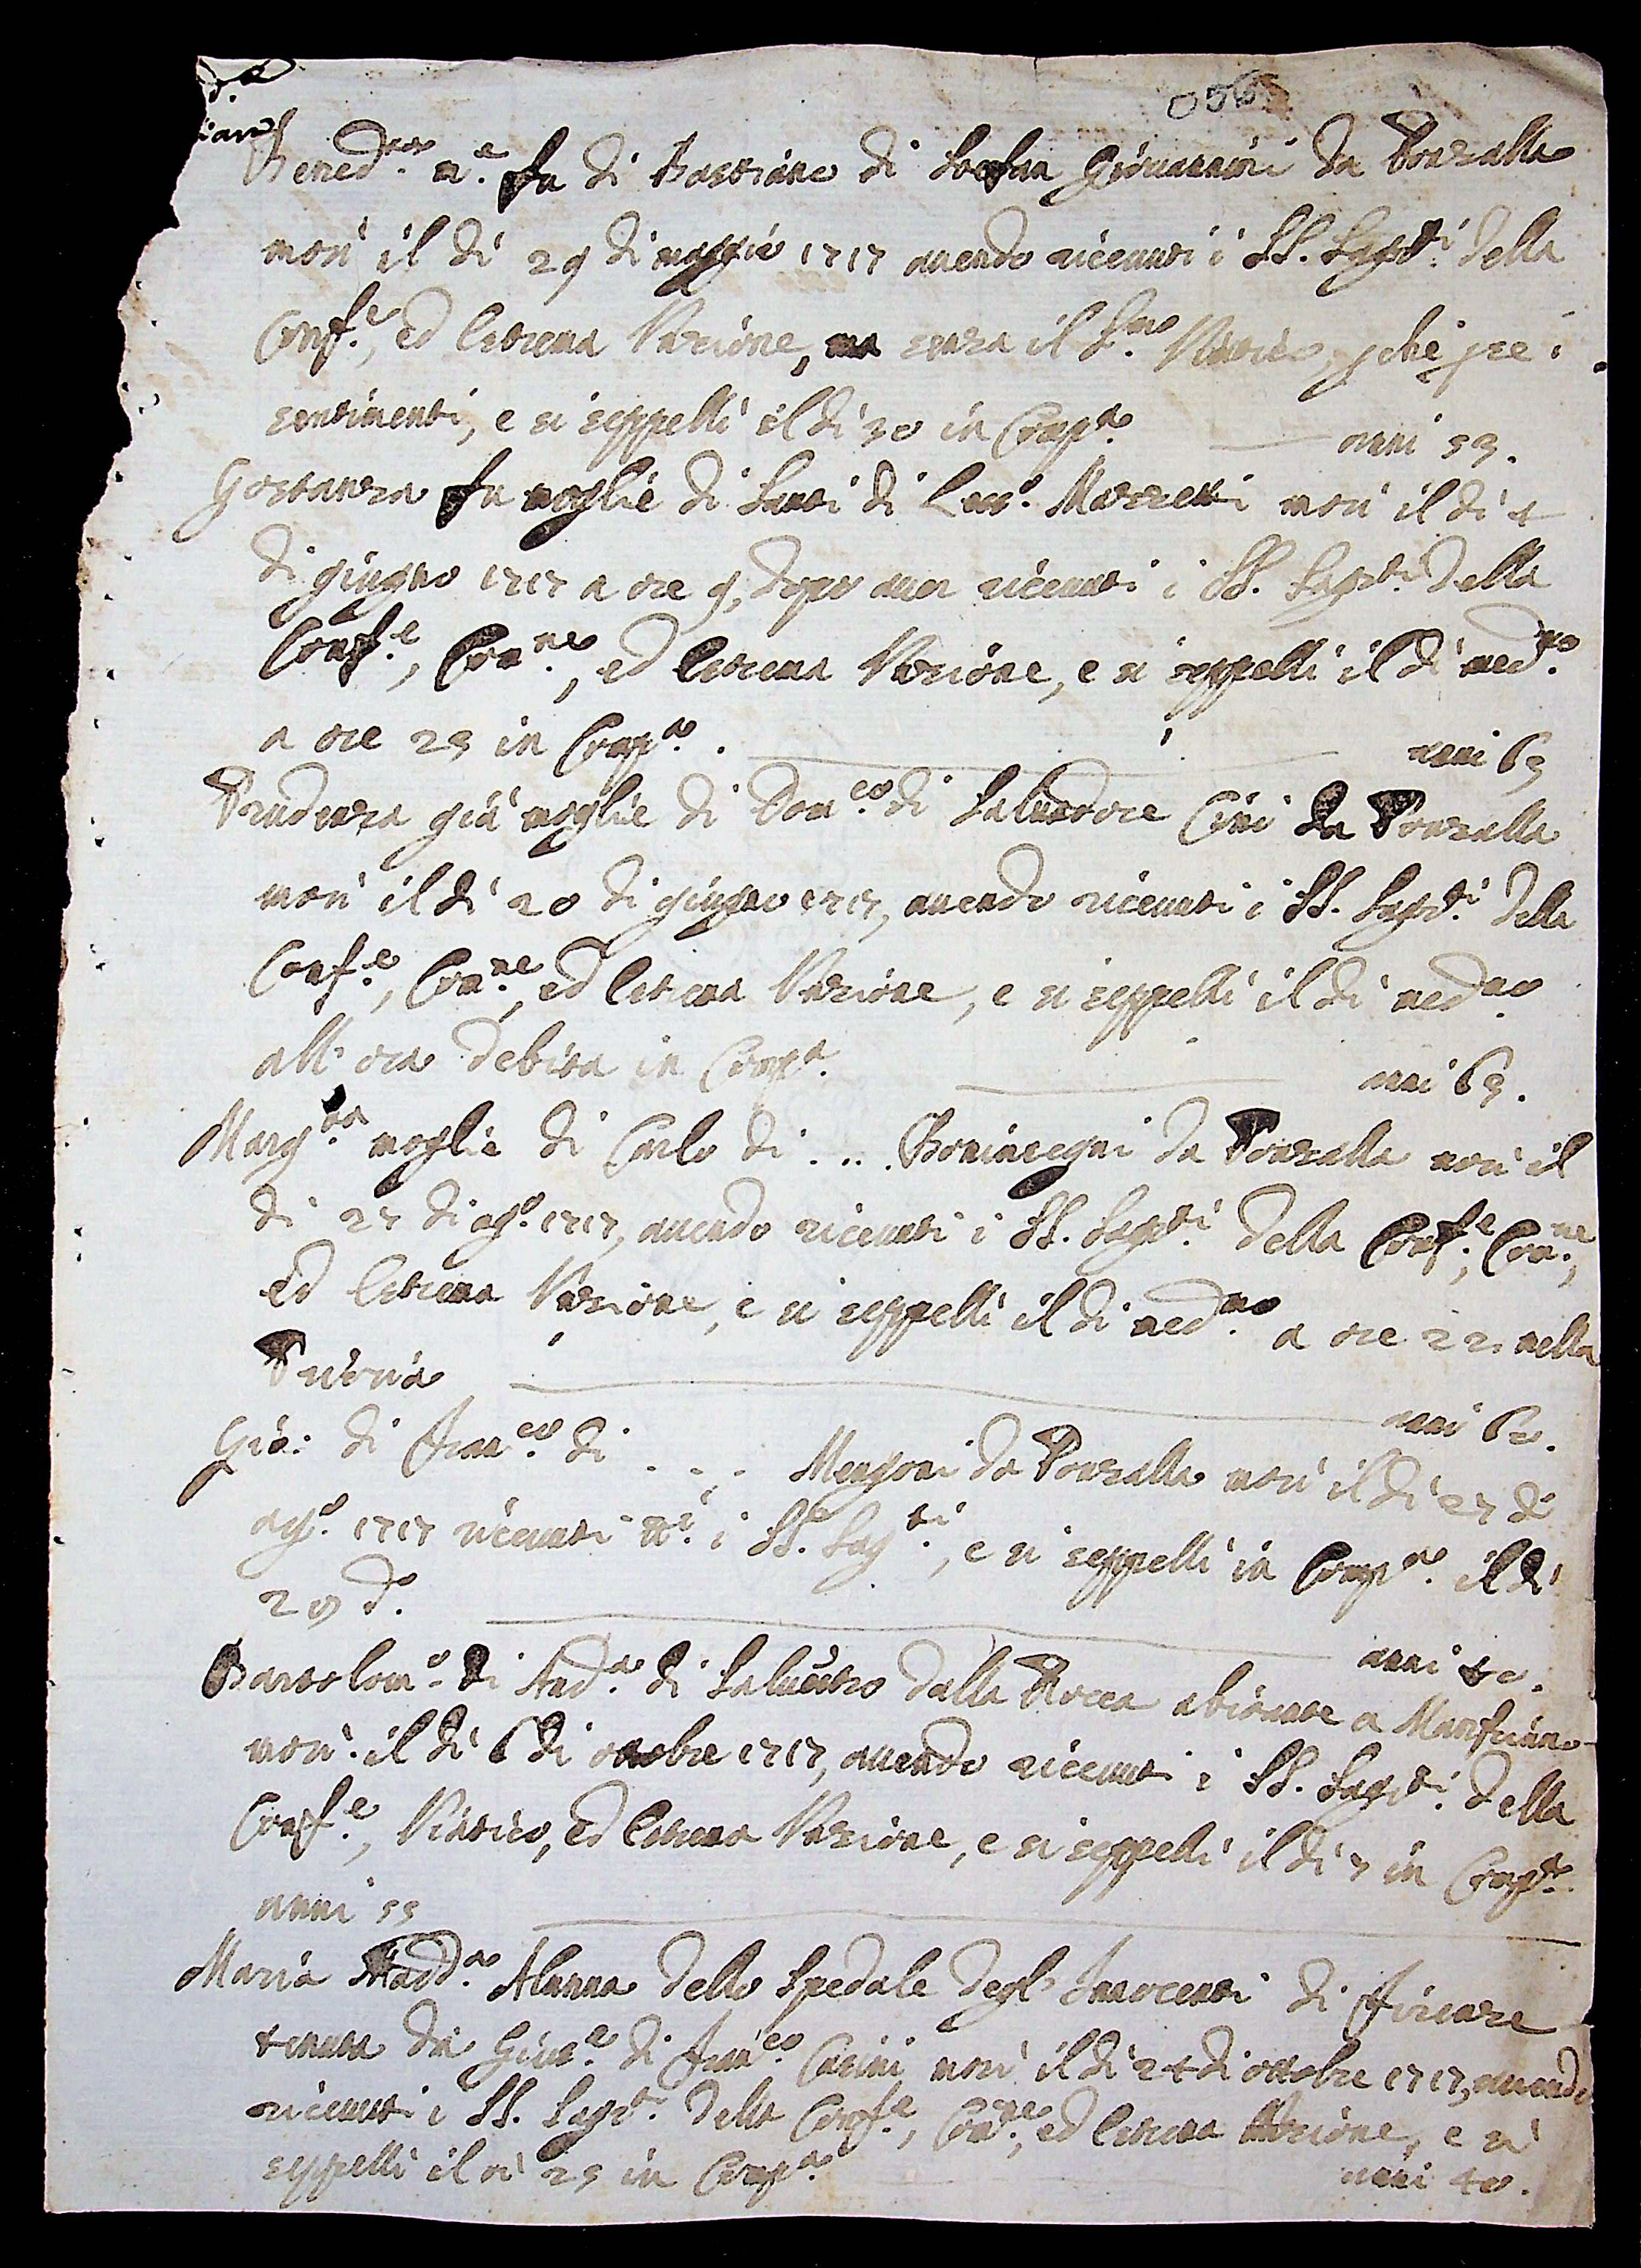 056
Bened.ta m.e fu di Bastiano di Stefan Giovannini da Ponzalla
morì il dì 29 di maggio 1717 avendo ricevuti i SS. Sagr.ti della
Conf.e, ed Estrema Unzione, ma senza il S.mo Viatico, pche pse i
sentimenti, e si seppellì il dì 30 in Comp.a anni 53.
Gostanza fu moglie di Santi di Lor.o Mazzetti morì il dì 4
di giugno 1717 a ore 9, dopo aver ricevuti i SS. Sagr.ti della
Conf.e, Com.ne, ed Estrema Unzione, e si seppellì il dì med.mo
a ore 23 in Comp.a. anni 63
Prudenza già moglie di Dom.co di Salvadore Cini da Ponzalla
morì il dì 20 di giugno 1717, avendo ricevuti i SS. Sagr.ti della
Conf.e, Com.ne, ed Estrema Unzione, e si seppellì il dì med.mo
all'ora debita in Comp.a. anni 63.
Marg.ta moglie di Carlo di . . . Boninsegni da Ponzalla morì il
dì 27 di ag.o 1717, avendo ricevuti i SS. Sagr.ti della Conf.e, Com.ne,
ed Estrema Unzione, e si seppellì il dì med.mo a ore 22 nella
Prioria anni 60.
Gio: di Fran.co di . . . Mengoni da Ponzalla morì il dì 27 di
ag.o 1717 ricevuti tt.i i SS. Sag.ti, e si seppellì in Comp.a il dì
29 d.o anni 40.
Bartolom.o di And.a di Salvestro dalla Rocca abitante a
morì il dì 6 di ottobre 1717, avendo ricevuti i SS. Sagr.ti della
Conf.e, Viatico, ed Estrema Unzione, e si seppellì il dì 7 in Comp.a
anni 55
Maria Madd.a Alunna dello Spedale degl'Innocenti di Firenze
tenuta da Gius.e di Fran.co Casini morì il dì 24 di ottobre 1717, avendo
ricevuti i SS. Sagr.ti della Conf.e, Com.ne, ed Estrema Unzione, e si
seppellì il dì 25 in Comp.a anni 40.